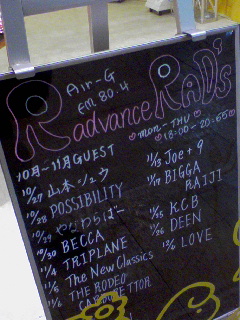 Air-G
FM 80.4
Radvance RAD'S
mon-THU
18:00-20:55
10月~11月GUEST
10/27 山本シュウ
10/28 POSSIBILITY
10/29
10/30 BECCA
11/4 TRIPLANE
11/5 The New Classics
11/6 THE RODEO
CARBURETTOR
11/13 Joe+9
11/17 BIGGA
RAIJI
K.C.B
DEEN
LOVE